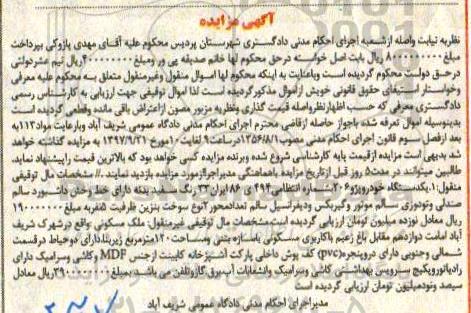 آگهی مزایده
نظربه نیابت واصله ازشعبه اجرای احکام مدنی دادگستری شهرستان پردیس محکوم علیه آقای مهدی پازوکی بپرداخت
مبلغ ۸۰۰۰۰۰۰۰ ریال بابت اصل خواسته درحق محکوم لها خانم صدیقه پی ور ومبلغ ۴۰۰۰۰۰۰ ریال نیم عشردولتی
درحق دولت محکوم گردیده است وباعنایت به اینکه محکوم لها اموال منقول وغیرمنقول متعلق به محکوم علیه معرفی
وخواستار استیفای حقوق قانونی خویش ازاموال مذکورگردیده است لذا اموال توقیفی جهت ارزیابی به کارشناس رسمی
دادگستری معرفی که حسب اظهارنظرواصله قیمت گذاری ونظریه مزبور مصون ازاعتراض باقی مانده وقطعی گردیده است
بدینوسیله اموال تعرفه شده باجواز حاصله ازقاضی محترم اجرای احکام مدنی دادگاه عمومی شریف آباد وبارعایت مواد ۱۱۳ به
بعد ازفصل سوم قانون اجرای احکام مدنی مصوب ۱۳۵۶/۸/۱ درساعت ۹ لغایت ۱۰ مورخ ۱۳۹۷/۹/۲۱ به مزایده گذاشته خواهد
شد بدیهی است مزایده ازقیمت پایه کارشناسی شروع شده وبرنده مزایده کسی خواهد بود که بالاترین قیمت راپیشنهاد نماید،
طالبین میتوانند در مدت ۵ روز قبل ازتاریخ مزایده باهماهنگی مدیراجراازمورد مزایده بازدید نمایند.// مشخصات مال توقیفی
منقول: ۱.یکدستگاه خودروپژو ۲۰۶ شماره انتظامی ۴۹۴ ق ۸۶ ایران ۳۳ رنگ سفید بدنه دارای خط وخش داشبورد سالم
صندلی وتودوزی سالم موتور وگیربکس ودیفرانسیل سالم تعدادمحور ۲ نوع سوخت بنزین ظرفیت ۵ نفربه مبلغ ۱۹۰۰۰۰۰۰۰
ریال معادل نوزده میلیون تومان ارزیابی گردیده است مشخصات مال توقیفی غیرمنقول: ملک مسکونی واقع درشهرک شریف
آباد امامت دوازدهم مقابل باغ زعیم باکاربری مسکونی باسازه بتنی ومساحت ۱۲۰ مترمربع زیربنادارای دوحیاط درقسمت
شمالی وجنوبی دارای دروپنجره (pvc) کف پوش داخلی پارکت آشپزخانه کابینت ازجنس MDF وکاشی وسرامیک دارای
رادیاتوروپکیج سرویس بهداشتی کاشی وسرامیک وانشعابات آب برق گازوتلفن می باشد. بمبلغ ۳۹۰۰۰۰۰۰۰۰ ریال معادل
سیصد ونودمیلیون تومان ارزیابی گردیده است
مدیراجرای احکام مدنی دادگاه عمومی شریف آباد